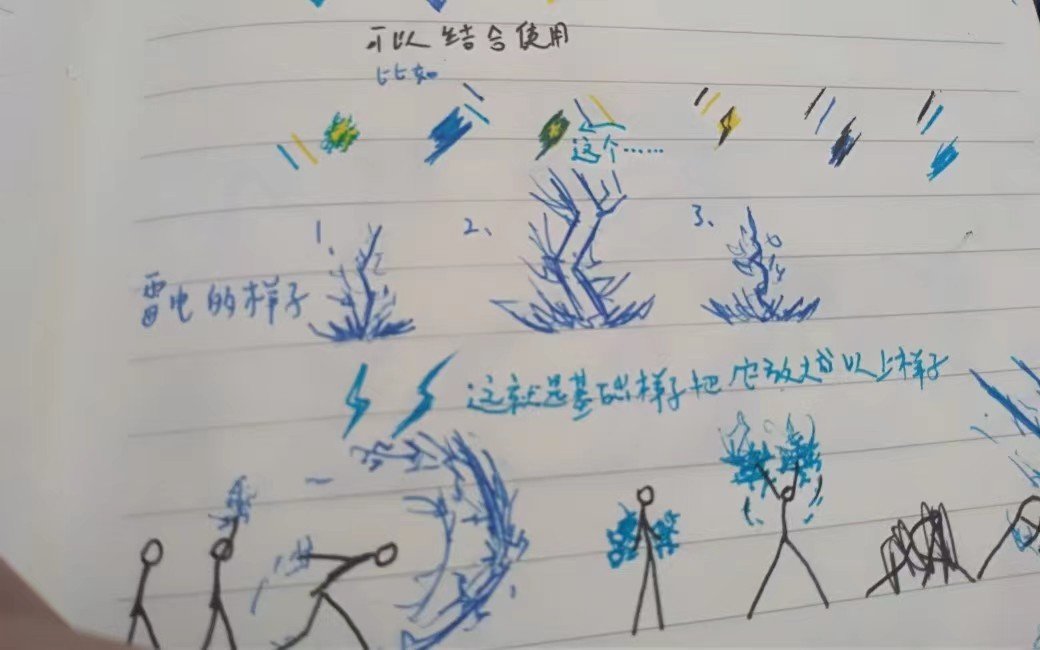 可以结合使用
比如
这个……
1、 2、 3、
雷电的样子
这就是基础样子把它放大成以上样子